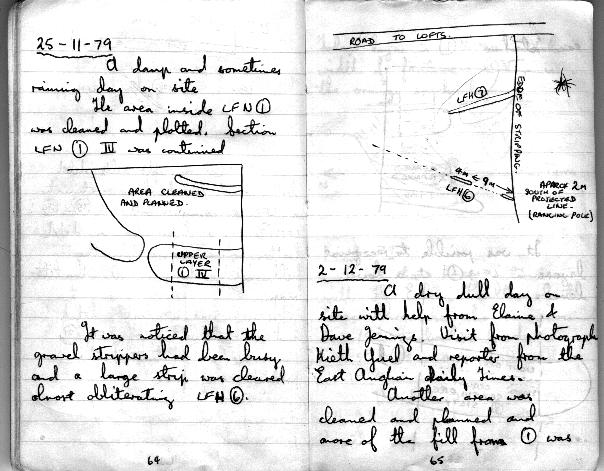 25-11-79
A damp and sometimes
raining day on site
The area inside LFN ①
was cleaned and plotted. Section
LFN ① IV was continued
AREA CLEANED
AND PLANNED.
UPPER
LAYER
① IV
It was noticed that the
gravel strippers had been busy
and a large strip was cleared
almost obliterating LFH ⑥.
64
ROAD TO LOFTS.
LFH ⑦
EDGE OF STRIPPING
4M E 9M
LFH ⑥
APROX 2M
SOUTH OF
PROTECTED
LINE.
(RANGING POLE)
2-12-79
A dry dull day on
site with help from Elaine &
Dave Jennings. Visit from photograph
Kieth and reporter from the
East Anglian daily Times.
Another area was
cleaned and planned and
more of the fill from ① was
65